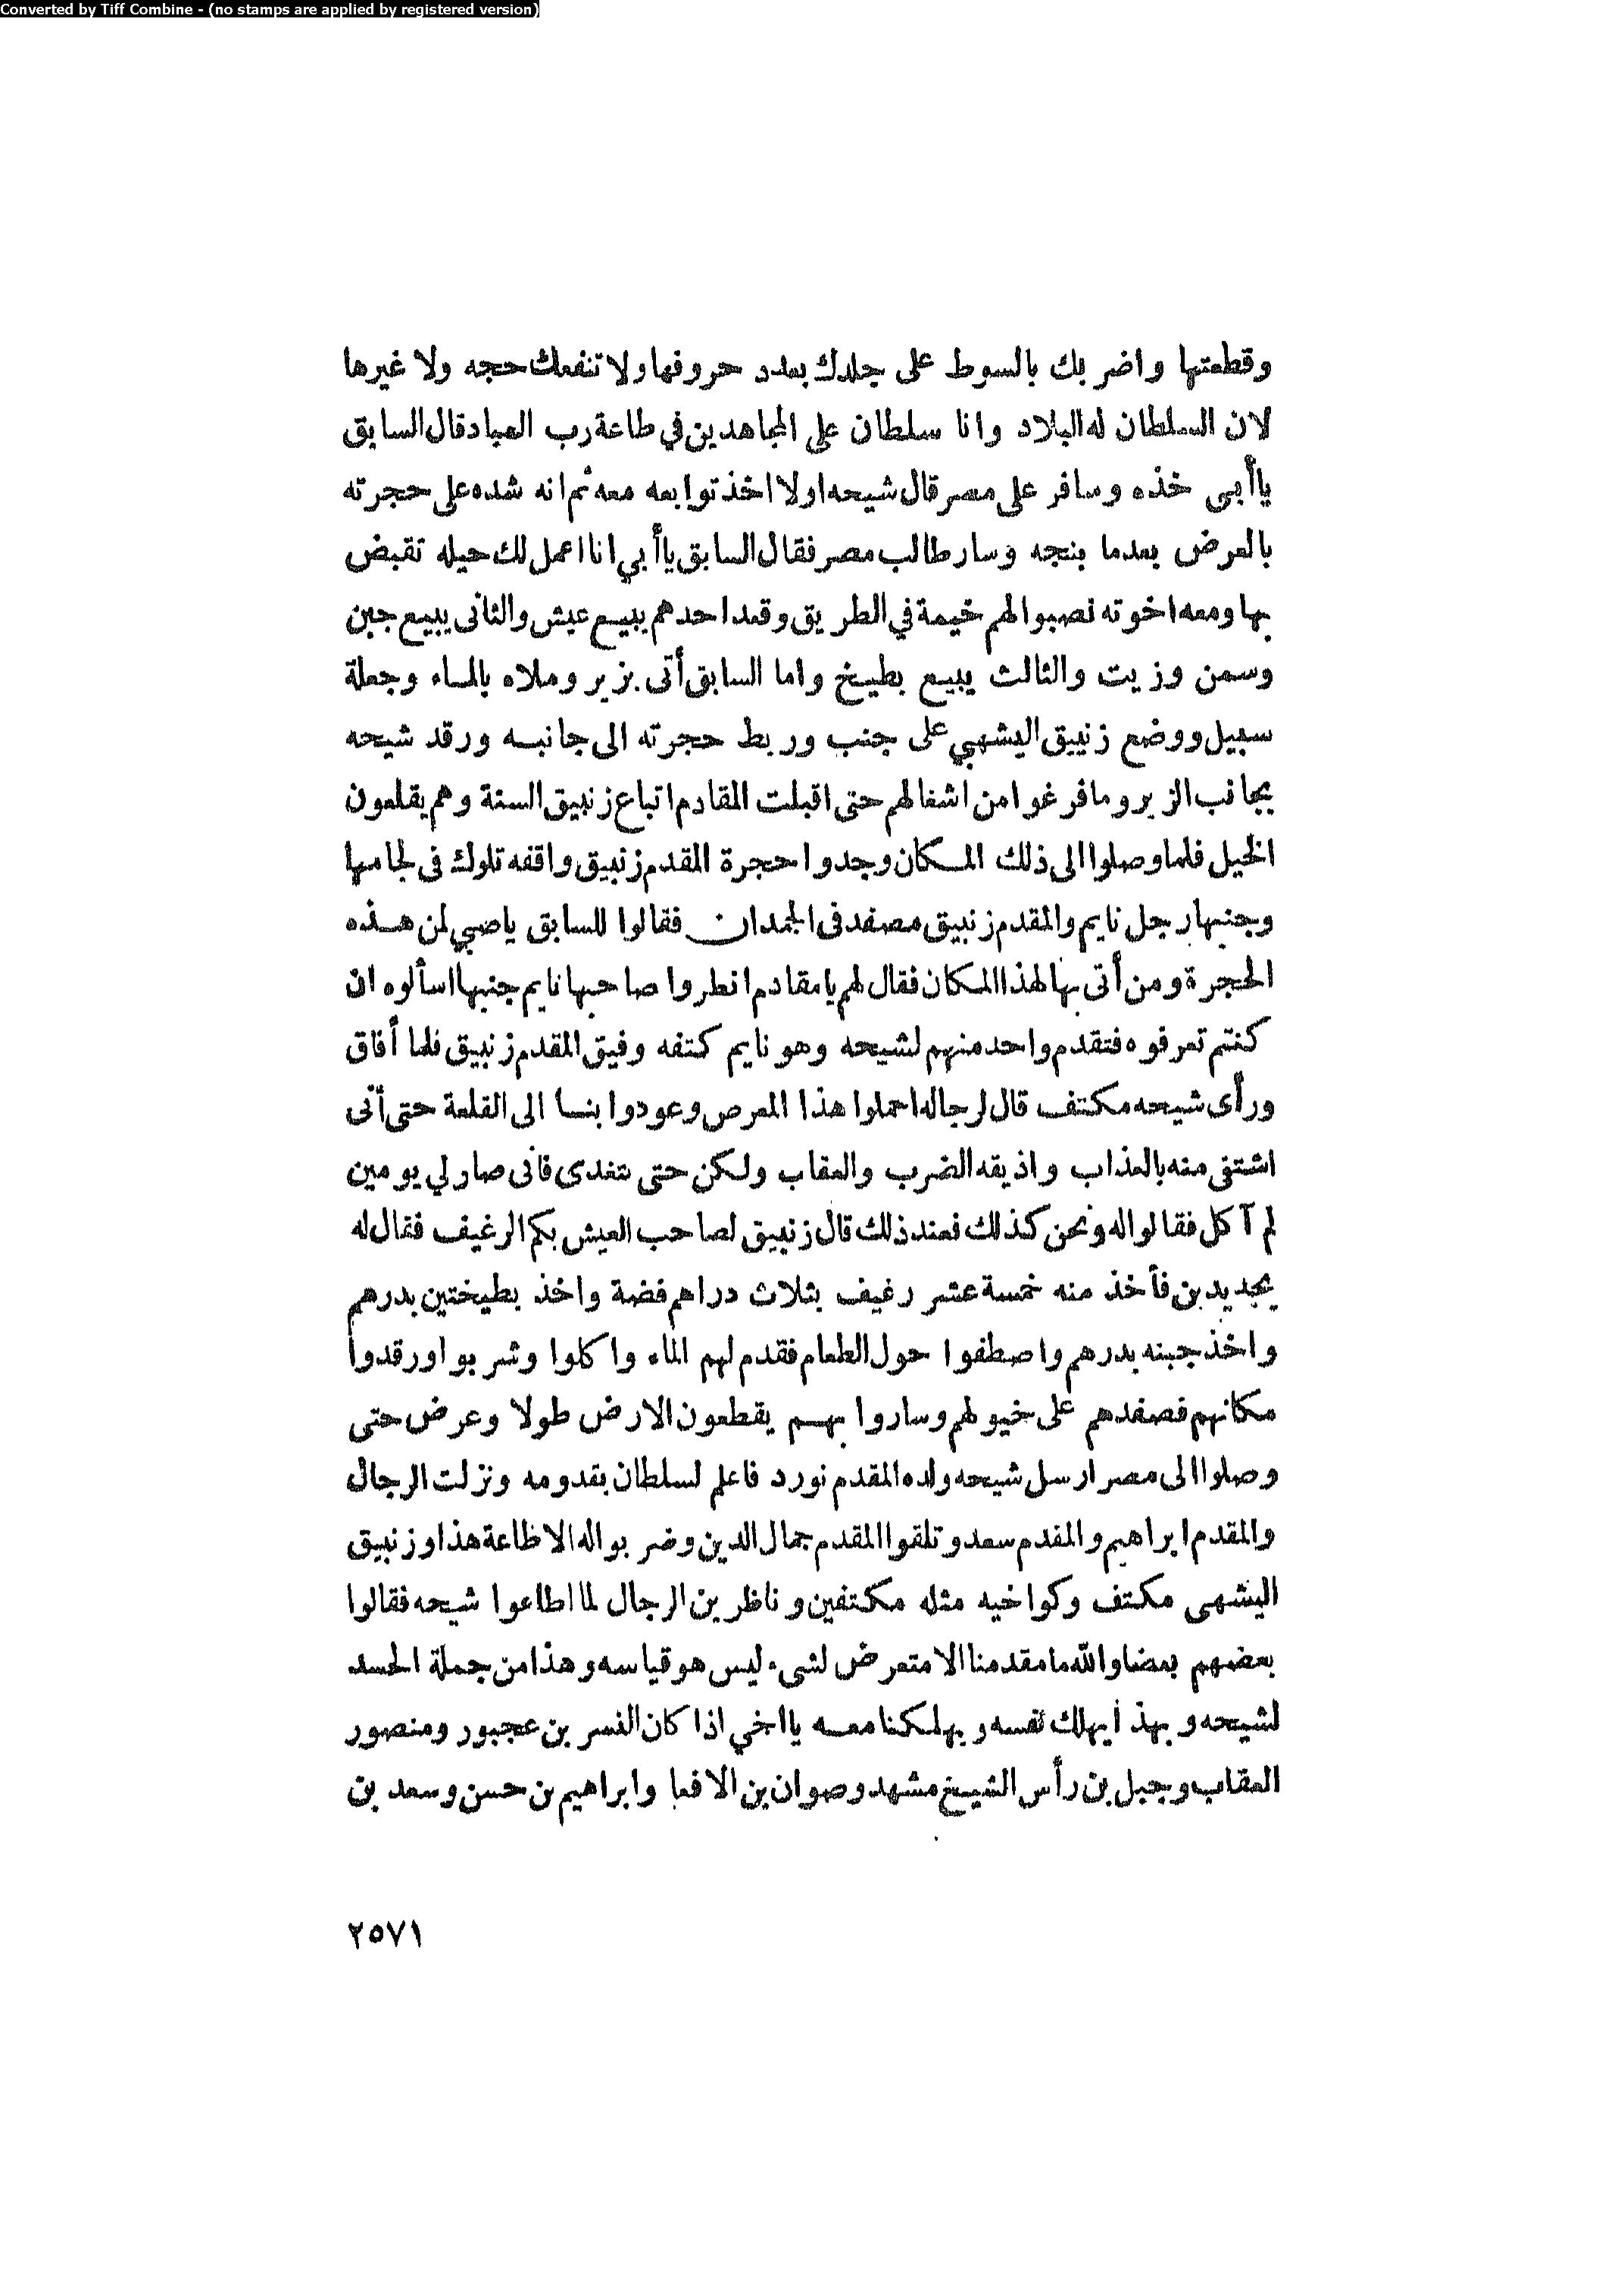 Converted by Tiff Combine - (no stamps are applied by registered version)
وقطعتها واضربك بالسوط على جلدك بعدد حروفها ولا تنفعك حجه ولا غيرها
لان السلطان له البلاد وانا سلطان على المجاهدين في طاعة رب العباد قال السابق
ياأبى خذه وسافر على مصر قال شيحه اولا اخذ توابعه معه ثم انه شده على حجرته
بالعرض بعدما بنجه وسار طالب مصر فقال السابق ياأبي انا اعمل لك حيله تقبض
بها ومعه اخوته نصبوا لهم خيمة في الطريق وقعد احدهم يبيع عيش والثانى يبيع جبن
وسمن وزيت والثالث يبيع بطيخ واما السابق أتى بزير وملاه بالماء وجعلة
سبيل ووضع زنبيق اليشهي على جنب وربط حجرته الى جانبه ورقد شيحه
بجانب الزير وما فرغوا من اشغالهم حتى اقبلت المقادم اتباع زنبيق الستة وهم يقلعون
الخيل فلما وصلوا الى ذلك المكان وجدوا حجرة المقدم زنبيق واقفه تلوك فى لجامها
وجنبها رجل نايم والمقدم زنبيق مصفد فى الجمدان فقالوا للسابق ياصبي لمن هذه
الحجرة ومن أتى بها لهذا المكان فقال لهم يا مقادم انظروا صاحبها نايم جنبها اسألوه ان
كنتم تعرفوه فتقدم واحد منهم لشيحه وهو نايم كتفه وفيق المقدم زنبيق فلما أفاق
ورأى شيحه مكتف قال لرجاله احملوا هذا المعرص وعودوا بنا الى القلعة حتى أنى
اشتفى منه بالعذاب واذيقه الضرب والعقاب ولكن حتى نتغدى فانى صار لي يومين
لم آكل فقالوا له ونحن كذلك فعند ذلك قال زنبيق لصاحب العيش بكم الرغيف فقال له
بجديدين فأخذ منه خمسة عشر رغيف بثلاث دراهم فضة واخذ بطيختين بدرهم
واخذ جبنه بدرهم واصطفوا حول الطعام فقدم لهم الماء واكلوا وشربوا ورقدوا
مكانهم فصفدهم على خيولهم وساروا بهم يقطعون الارض طولا وعرض حتى
وصلوا الى مصر ارسل شيحه ولده المقدم نورد فاعلم لسلطان بقدومه ونزلت الرجال
والمقدم ابراهيم والمقدم سعد وتلقوا المقدم جمال الدين وضربوا له الاظاعة هذا وزنبيق
اليشهى مكتف وكواخيه مثله مكتفين وناظرين الرجال لما اطاعوا شيحه فقالوا
بعضهم بعضا والله ما مقدمنا الا متعرض لشىء ليس هو قياسه وهذا من جملة الحسد
لشيحه وبهذ أيهلك نفسه ويهلكنا معه يا اخي اذا كان النسر بن عجبور ومنصور
العقاب وجبل بن رأس الشيخ مشهد وصوان بن الافعا وابراهيم بن حسن وسعد بن
٢٥٧١